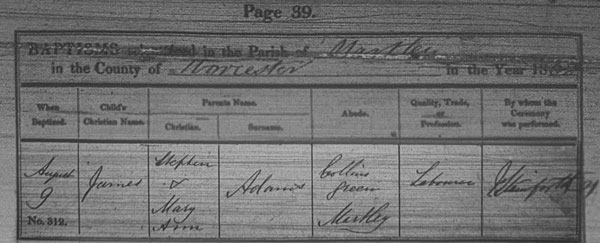 Page 39.
BAPTISMS solemnized in the Parish of Martley
in the County of Worcester in the Year 18
When Baptized. Child's Christian Name. Parents Name. Christian. Surname. Abode. Quality, Trade, or Profession. By whom the Ceremony was performed.
August 9 James Stephen & Mary Ann Adams Collins Green Martley Labourer
No. 312.